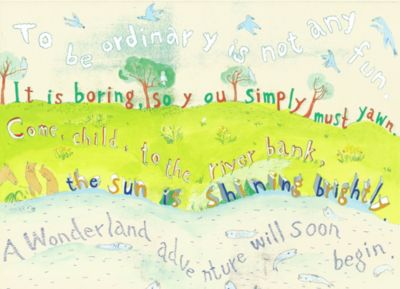 To be ordinary is not any fun.
It is boring, so you simply must yawn.
Come, child, to the river bank,
the sun is shining brightly.
A Wonderland adventure will soon begin.